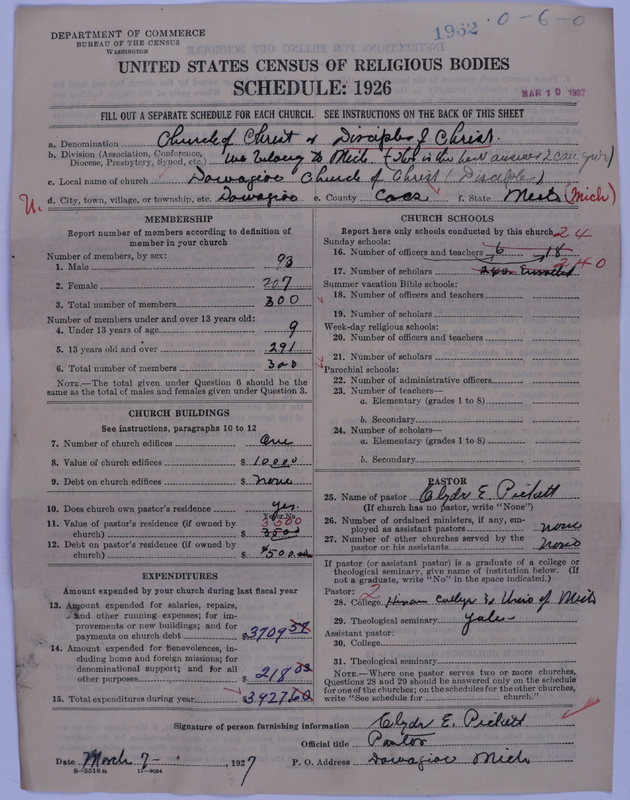 DEPARTMENT OF COMMERCE
BUREAU OF THE CENSUS
WASHINGTON
1962 0-6-0
UNITED STATES CENSUS OF RELIGIOUS BODIES
SCHEDULE: 1926
MAR 10 1927
FILL OUT A SEPARATE SCHEDULE FOR EACH CHURCH. SEE INSTRUCTIONS ON THE BACK OF THIS SHEET
a. Denomination Church of Christ or Disciples of Christ.
b. Division (Association, Conference, Diocese, Presbytery, Synod, etc.) we belong to Mich (This is the best answer I can give)
c. Local name of church Dowagiac Church of Christ (Disciples)
d. City, town, village, or township, etc. Dowagiac e. County Cass f. State (Mich)
U.
MEMBERSHIP
Report number of members according to definition of member in your church
Number of members, by sex:
1. Male 93
2. Female 207
3. Total number of members 300
Number of members under and over 13 years old:
4. Under 13 years of age 9
5. 13 years old and over 291
6. Total number of members 300
NOTE.—The total given under Question 6 should be the same as the total of males and females given under Question 3.
CHURCH BUILDINGS
See instructions, paragraphs 10 to 12
7. Number of church edifices One
8. Value of church edifices $ 10000
9. Debt on church edifices $ None
10. Does church own pastor's residence yes.
Yes or No
11. Value of pastor's residence (if owned by church) $ 3500
12. Debt on pastor's residence (if owned by church) $ 500.00
EXPENDITURES
Amount expended by your church during last fiscal year
13. Amount expended for salaries, repairs, and other running expenses; for improvements or new buildings; and for payments on church debt $ 3709
14. Amount expended for benevolences, including home and foreign missions; for denominational support; and for all other purposes $ 218
15. Total expenditures during year $ 3927
CHURCH SCHOOLS
Report here only schools conducted by this church
24
Sunday schools:
16. Number of officers and teachers 6 18
240
17. Number of scholars 240 Enrolled
Summer vacation Bible schools:
18. Number of officers and teachers
19. Number of scholars
Week-day religious schools:
20. Number of officers and teachers
21. Number of scholars
Parochial schools:
22. Number of administrative officers
23. Number of teachers—
a. Elementary (grades 1 to 8)
b. Secondary
24. Number of scholars—
a. Elementary (grades 1 to 8)
b. Secondary
PASTOR
25. Name of pastor Clyde E. Pickett
(If church has no pastor, write "None")
26. Number of ordained ministers, if any, employed as assistant pastors none
27. Number of other churches served by the pastor or his assistants none
If pastor (or assistant pastor) is a graduate of a college or theological seminary, give name of institution below. (If not a graduate, write "No" in the space indicated.)
Pastor: 2
28. College Hiram College & Univ of Mich
29. Theological seminary Yale
Assistant pastor:
30. College
31. Theological seminary
NOTE.—Where one pastor serves two or more churches, Questions 28 and 29 should be answered only on the schedule for one of the churches; on the schedules for the other churches, write "See schedule for church."
Signature of person furnishing information Clyde E. Pickett
Official title Pastor
Date March 7- , 1927 P. O. Address Dowagiac Mich
8-5518a 11-9064